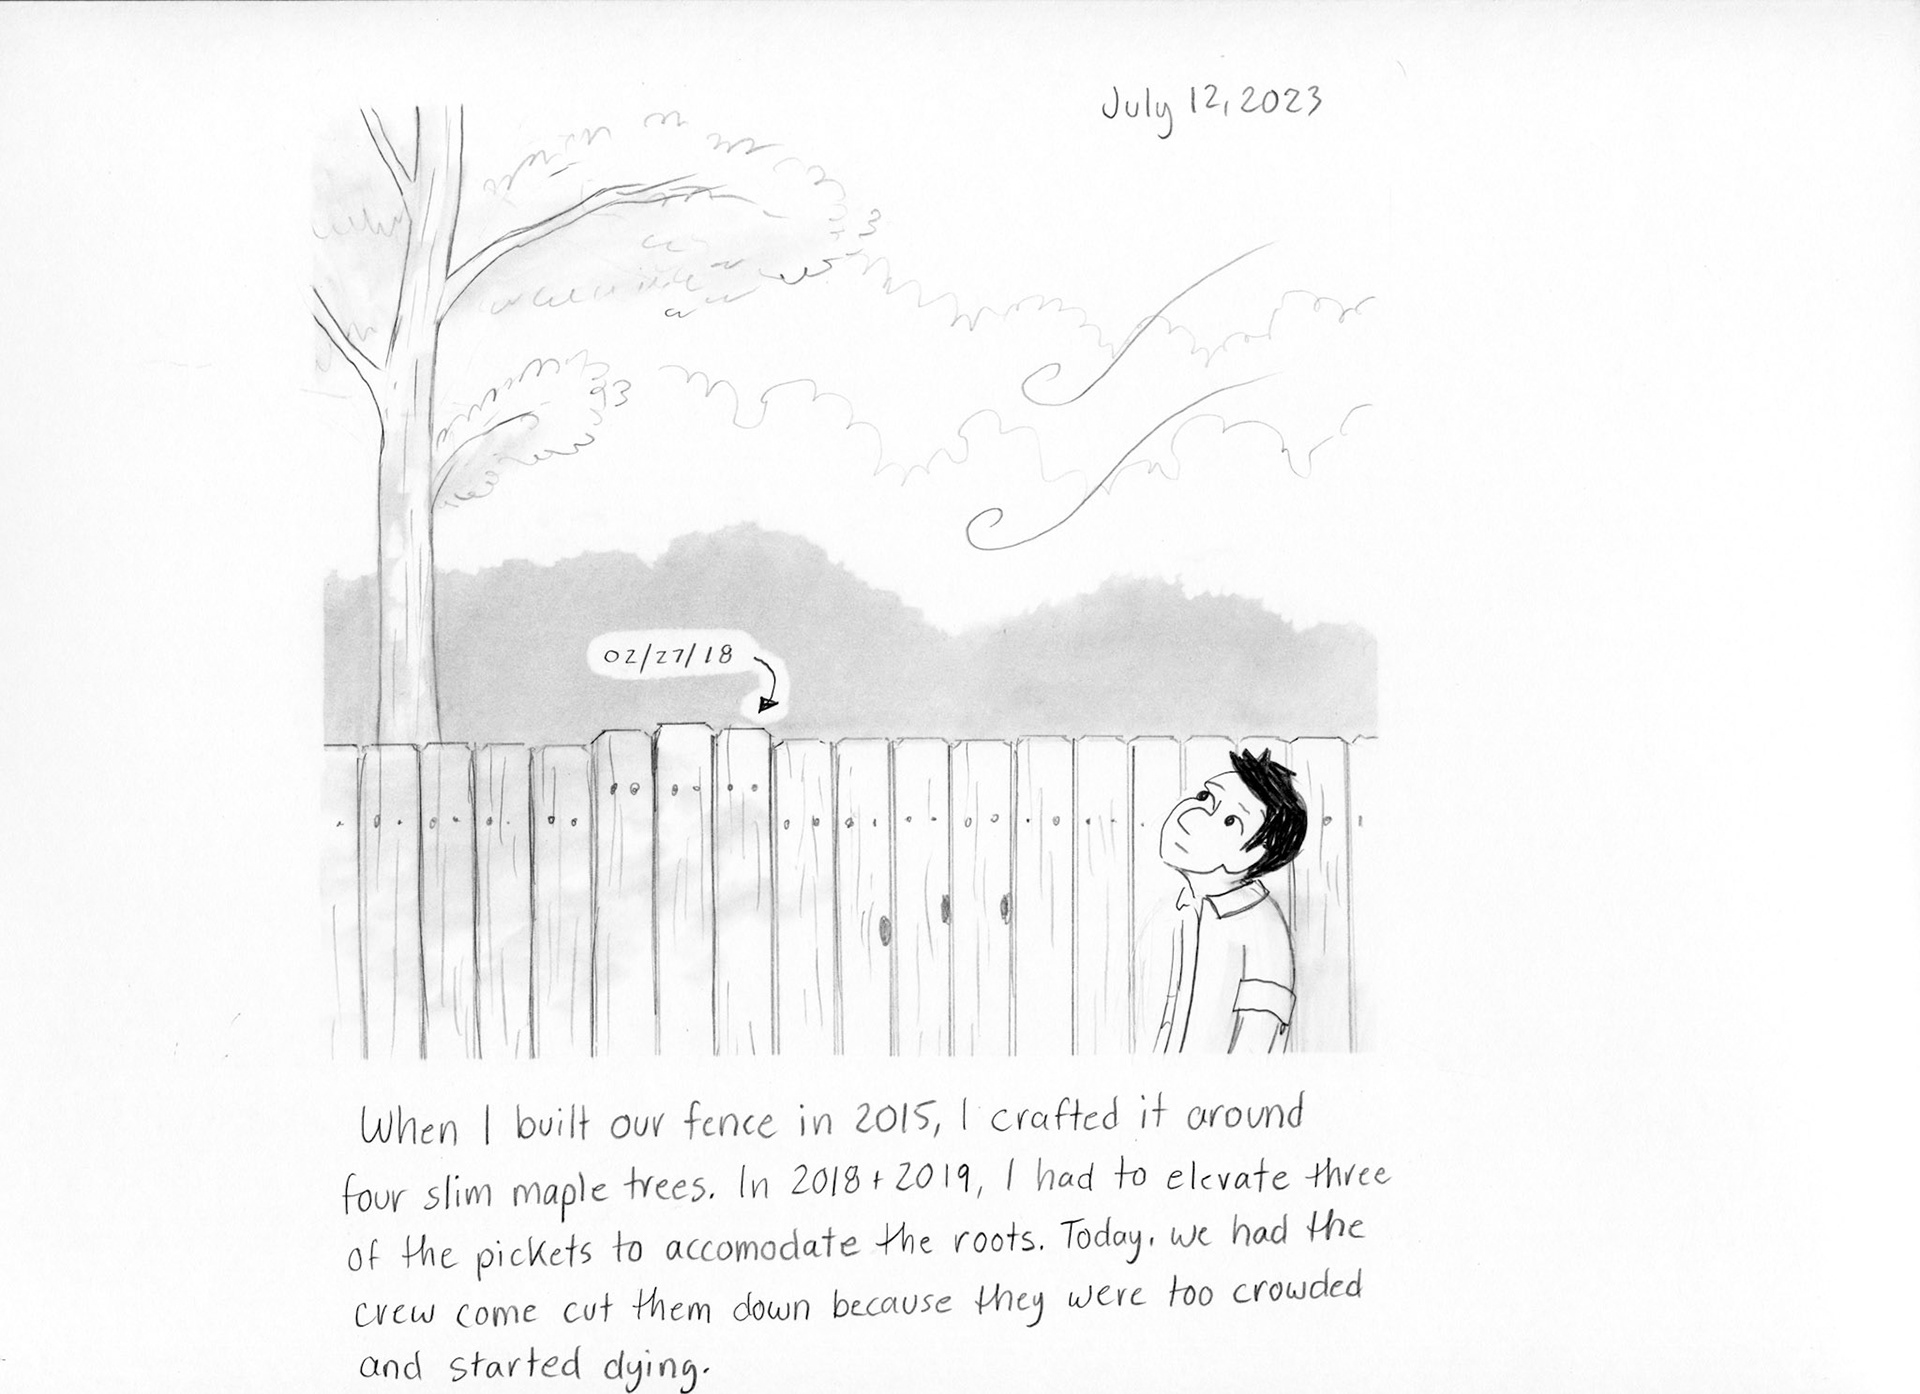 July 12, 2023
02/27/18
When I built our fence in 2015, I crafted it around
four slim maple trees. In 2018 + 2019, I had to elevate three
of the pickets to accomodate the roots. Today, we had the
crew come cut them down because they were too crowded
and started dying.